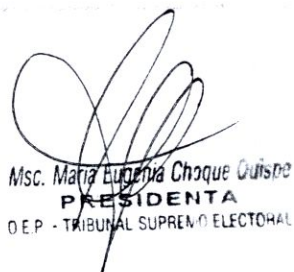 Msc. Maria Eugenia Choque Quispe
PRESIDENTA
O.E.P - TRIBUNAL SUPREMO ELECTORAL